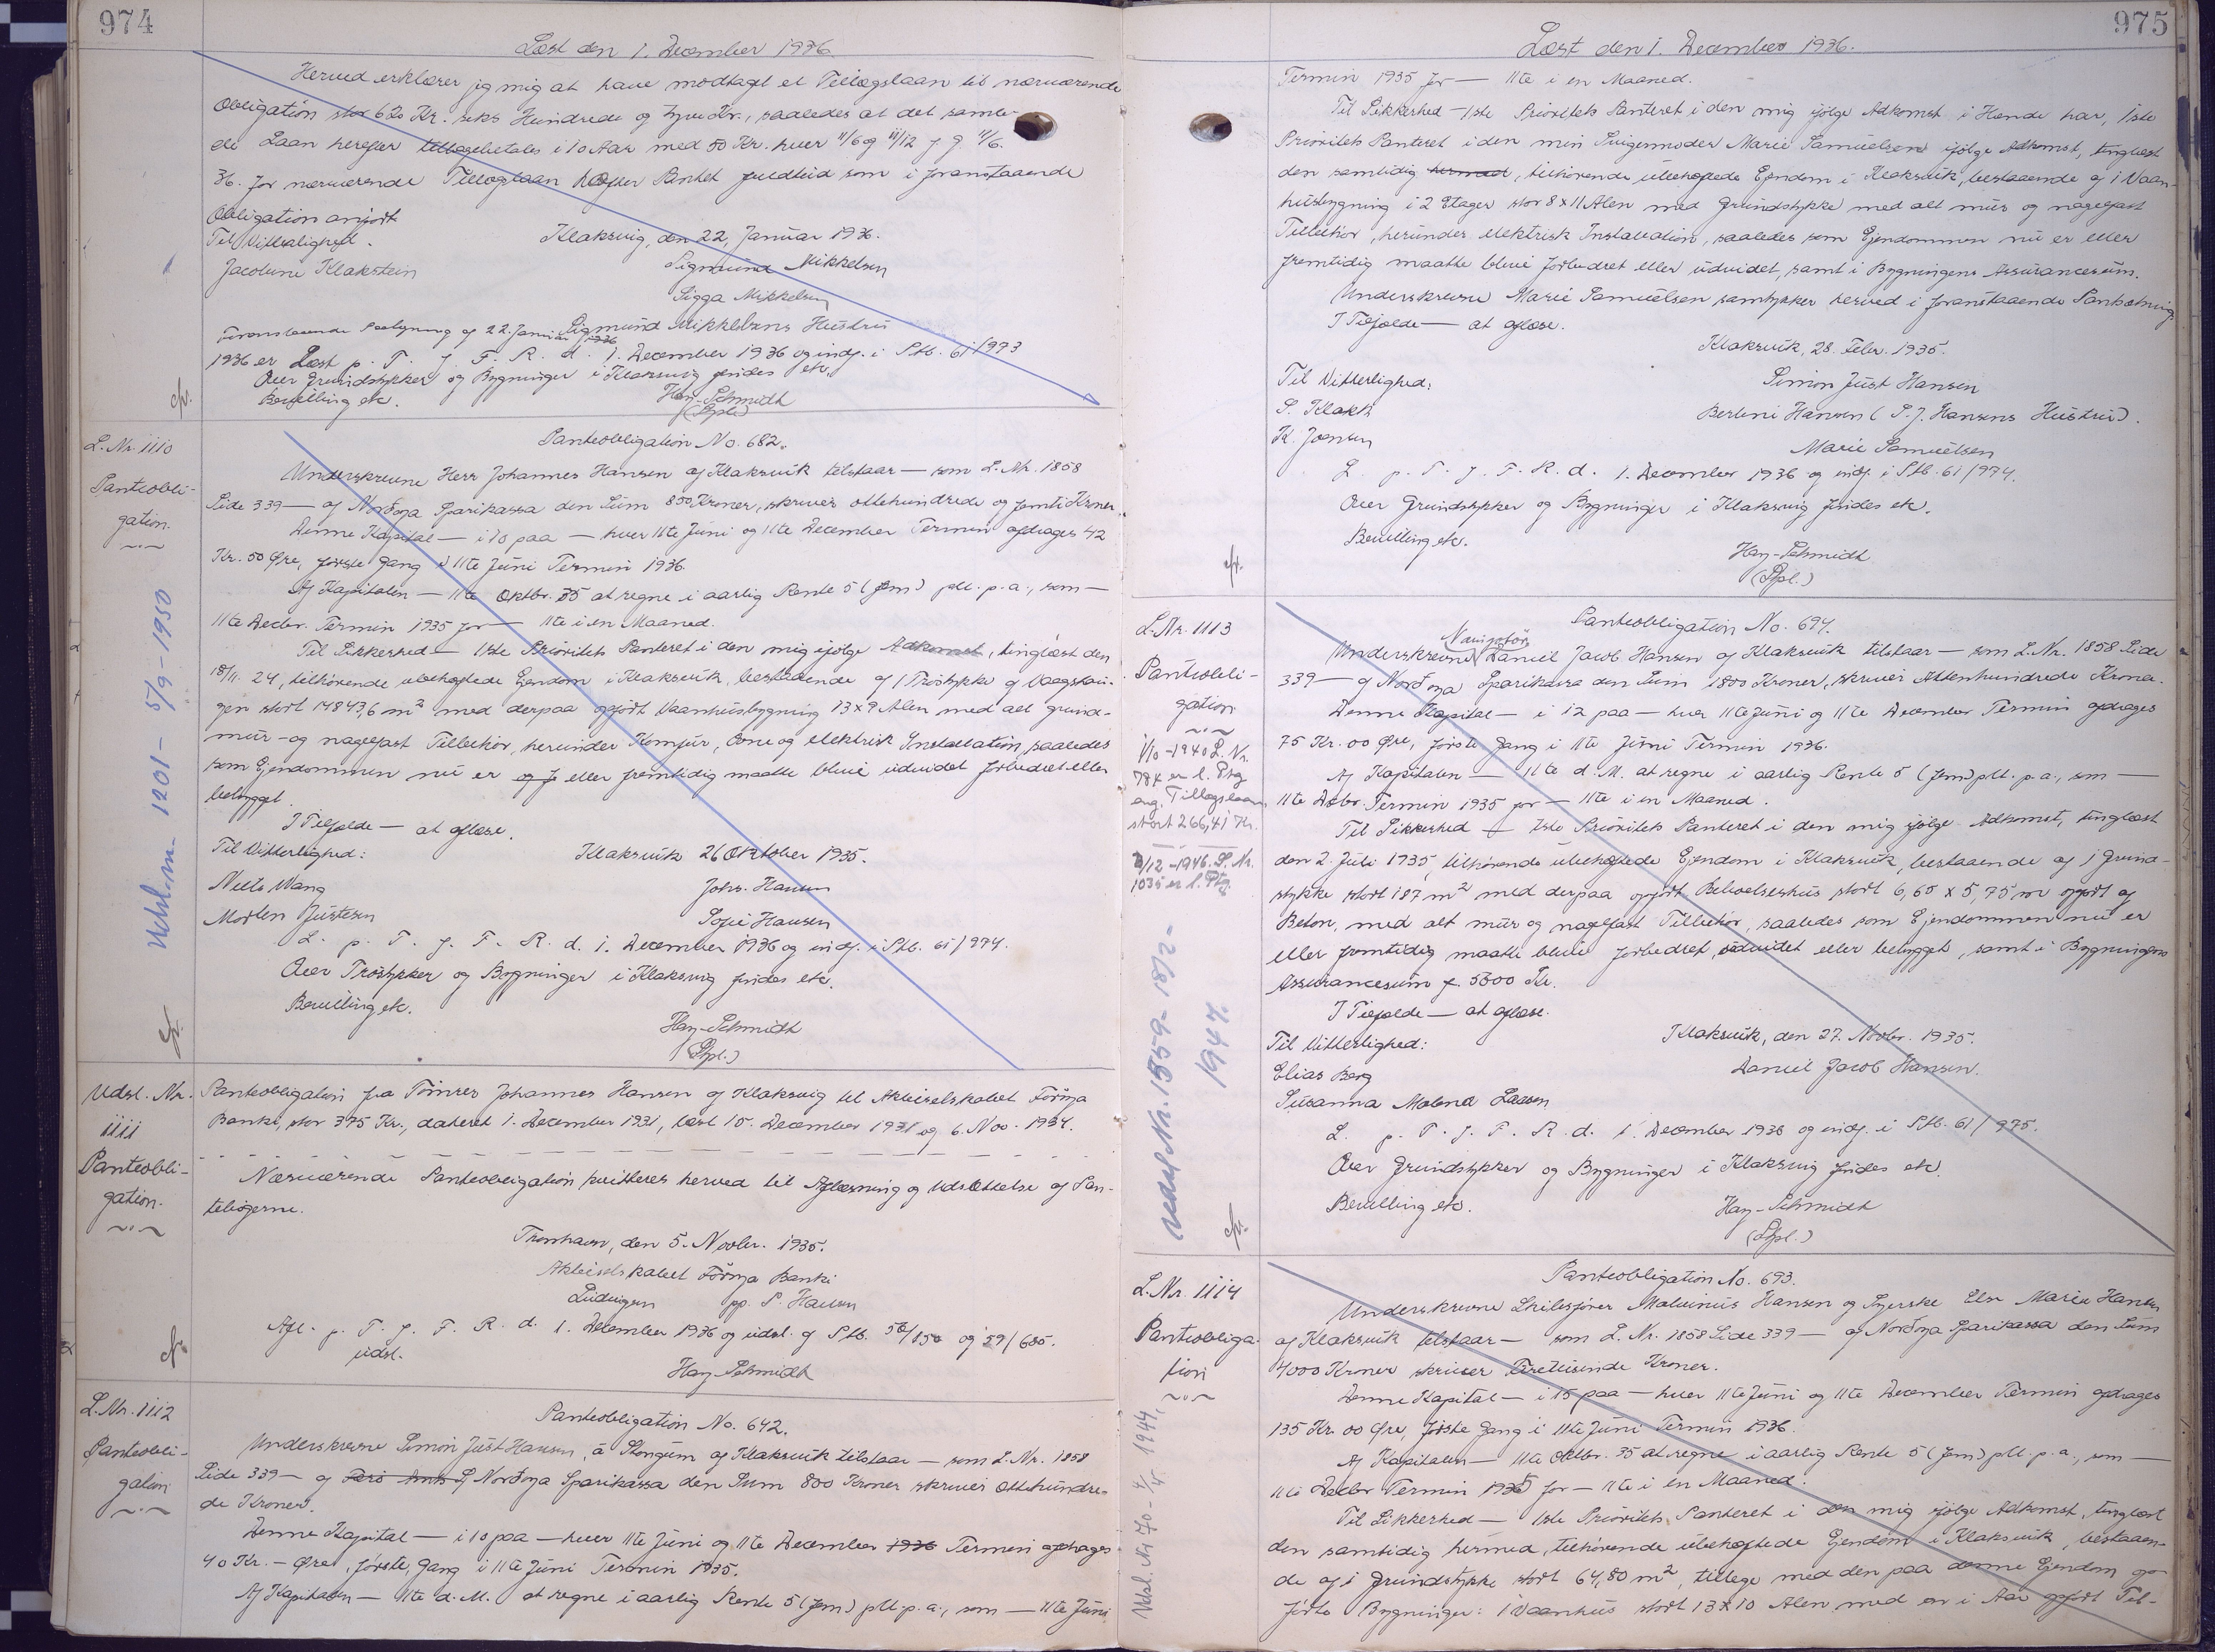 974
Læst den 1. December 1936.
Herved erklærer jeg mig at have modtaget et Tillægslaan til nærværende
Obligation stor 620 Kr. seks Hundrede og tyve Kr., saaledes at det samle-
de Laan herefter tilbagebetales i 10 Aar med 50 Kr. hver 11/6 og 11/12 f. g. 11/6.
36. for nærværende Tillægslaan hæfter Pantet fuldtud som i foranstaaende
Obligation anført
Til Vitterlighed.
Klaksvig, den 22, Januar 1936.
Jacobine Klakstein
Sigmund Mikkelsen
Sigga Mikkelsen
Sigmund Mikkelsens Hustru
Foranstaaende Paategning af 22. Januar 1936
1936 er Læst p. T. f. F. R. d. 1. December 1936 og indf. i Ptb. 61/973
Over Grundstykker og Bygninger i Klaksvig findes etc.
Bevilling etc.
Hay-Schmidt
(Spl.)
L. Nr. 1110
Panteobli-
gation.
Udsl. nr. 1201 - 5/9 - 1950
Panteobligation No. 682.
Underskrevne Herr Johannes Hansen af Klaksvik tilstaar — som L. Nr. 1858
Side 339 — af Norðoya Sparikassa den Sum 850 Kroner, skriver ottehundrede og femti Kroner.
Denne Kapital — i 10 paa — hver 11te Juni og 11te December Termin afdrages 42
Kr. 50 Øre, første Gang i 11te Juni Termin 1936.
Af Kapitalen — 11te Oktbr. 35 at regne i aarlig Rente 5 (fem) pCt. p. a., som —
11te Decbr. Termin 1935 for — 11te i en Maaned.
Til Sikkerhed — 1ste Prioritets Panteret i den mig ifølge Adkomst, tinglæst den
18/11. 24, tilhørende ubehæftede Ejendom i Klaksvik, bestaaende af 1 Trøstykke af Vaagshau-
gen stort 14843,6 m² med derpaa opført Vaanhusbygning 13 x 9 Alen med alt grund-
mur- og nagelfast Tilbehør, herunder Komfur, Ovne og elektrisk Installation, saaledes
som Ejendommen nu er og fr eller fremtidig maatte blive udvidet forbedret eller
bebygget.
I Tilfælde — at afløse.
Til Vitterlighed:
Klaksvik 26 Oktober 1935.
Niels Wang
Johs. Hansen
Morten Justesen
Sofie Hansen
L. p. T. f. F. R. d. 1. December 1936 og indf. i Ptb. 61/974.
Over Trøstykker og Bygninger i Klaksvig findes etc.
Bevilling etc.
Hay-Schmidt
(Spl.)
Udsl. Nr.
1111
Panteobli-
gation.
Panteobligation fra Tømrer Johannes Hansen af Klaksvig til Aktieselskabet Føroya
Banki, stor 375 Kr., dateret 1. December 1931, læst 15. December 1931 og 6. Nov. 1934.
Nærværende Panteobligation kvitteres herved til Aflæsning og Udslettelse af Pan-
tebøgerne.
Tronhavn, den 5. Novbr. 1935.
Aktieselskabet Føroya Banki
Ludvigsen pp. P. Hansen
Afl. p. T. f. F. R. d. 1. December 1936 og udsl. af Ptb. 58/150 og 59/685.
udsl.
Hay-Schmidt
L. Nr. 1112
Panteobli-
gation
Panteobligation No. 642.
Underskrevne Simon Just Hansen, á Stongum af Klaksvik tilstaar — som L. Nr. 1858
Side 339 — af Norðoya Sparikassa den Sum 800 Kroner skriver Ottehundre-
de Kroner.
Denne Kapital — i 10 paa — hver 11te Juni og 11te December 1936 Termin afdrages
40 Kr. — Øre, første Gang i 11te Juni Termin 1935.
Af Kapitalen — 11te d. M. at regne i aarlig Rente 5 (fem) pCt. p. a., som — 11te Juni
975
Læst den 1. December 1936.
Termin 1935 for — 11te i en Maaned.
Til Sikkerhed — 1ste Prioritets Panteret i den mig ifølge Adkomst i Hænde har, 1ste
Prioritets Panteret i den min Svigermoder Marie Samuelsen ifølge Adkomst, tinglæst
den samtidig hermed, tilhørende ubehæftede Ejendom i Klaksvik, bestaaende af 1 Vaan-
husbygning i 2 Etager stor 8 x 11 Alen med Grundstykke med alt mur og nagelfast
Tilbehør, herunder elektrisk Installation, saaledes som Ejendommen nu er eller
fremtidig maatte blive forbedret eller udvidet, samt i Bygningens Assurancesum.
Underskrevne Marie Samuelsen samtykker herved i foranstaaende Pantsætning.
I Tilfælde — at afløse.
Klaksvik, 28. Febr. 1935.
Til Vitterlighed:
Simon Just Hansen
S. Klakk
Berlini Hansen (S. J. Hansens Hustru).
K. Joensen
Marie Samuelsen
L. p. T. f. F. R. d. 1. December 1936 og indf. i Ptb. 61/974.
Over Grundstykker og Bygninger i Klaksvig findes etc.
Bevilling etc.
Hay-Schmidt
(Spl.)
L. Nr. 1113
Panteobli-
gation
1/10 - 1940 L. Nr.
784 er l. Ptg
ang. Tillægslaan
stort 266,41 Kr.
3/12 - 1946. L. Nr.
1035 er l. Ptg.
Udsl. Nr. 1559 - 18/2 -
1947.
Panteobligation No. 694.
Underskrevne Navigatør Daniel Jacob Hansen af Klaksvik tilstaar — som L. Nr. 1858 Side
339 — af Norðoya Sparikassa den Sum 1800 Kroner, skriver Attenhundrede Krona.
Denne Kapital — i 12 paa — hver 11te Juni og 11te December Termin afdrages
75 Kr. 00 Øre, første Gang i 11te Juni Termin 1936.
Af Kapitalen — 11te d. M. at regne i aarlig Rente 5 (fem) pCt. p. a., som —
11te Decbr. Termin 1935 for — 11te i en Maaned.
Til Sikkerhed — 1ste Prioritets Panteret i den mig ifølge Adkomst, tinglæst
den 2. Juli 1935, tilhørende ubehæftede Ejendom i Klaksvik, bestaaende af 1 Grund-
stykke stort 187 m² med derpaa opført Beboelseshus stort 6,65 x 5,75 m opført af
Beton, med alt mur og nagelfast Tilbehør, saaledes som Ejendommen nu er
eller fremtidig maatte blive forbedret, udvidet eller bebygget, samt i Bygningens
Assurancesum f. 5500 Kr.
I Tilfælde — at afløse.
Til Vitterlighed:
Klaksvik, den 27. Novbr. 1935.
Elias Berg
Daniel Jacob Hansen.
Susanna Malena Laasen
L. p. T. f. F. R. d. 1. December 1936 og indf. i Ptb. 61/975.
Over Grundstykker og Bygninger i Klaksvig findes etc.
Bevilling etc.
Hay-Schmidt
(Spl.)
L. Nr. 1114
Panteobliga-
tion
Udsl. Nr 70 - 4/4 - 1944.
Panteobligation No. 693.
Underskrevne Skibsfører Malvinius Hansen og Syerske Else Marie Hansen
af Klaksvik tilstaar — som L. Nr. 1858 Side 339 — af Norðoya Sparikassa den Sum
4000 Kroner skriver Firetusinde Kroner.
Denne Kapital — i 15 paa — hver 11te Juni og 11te December Termin afdrages
135 Kr. 00 Øre, første Gang i 11te Juni Termin 1936.
Af Kapitalen — 11te Oktbr. 35 at regne i aarlig Rente 5 (fem) pCt. p. a., som —
11te Decbr Termin 1935 for — 11te i en Maaned.
Til Sikkerhed — 1ste Prioritets Panteret i den mig ifølge Adkomst, tinglæst
den samtidig hermed, tilhørende ubehæftede Ejendom i Klaksvik, bestaaen-
de af 1 Grundstykke stort 64,80 m², tillige med den paa denne Ejendom op-
førte Bygninger: 1 Vaanhus stort 13 x 10 Alen med en i Aar opført Til-